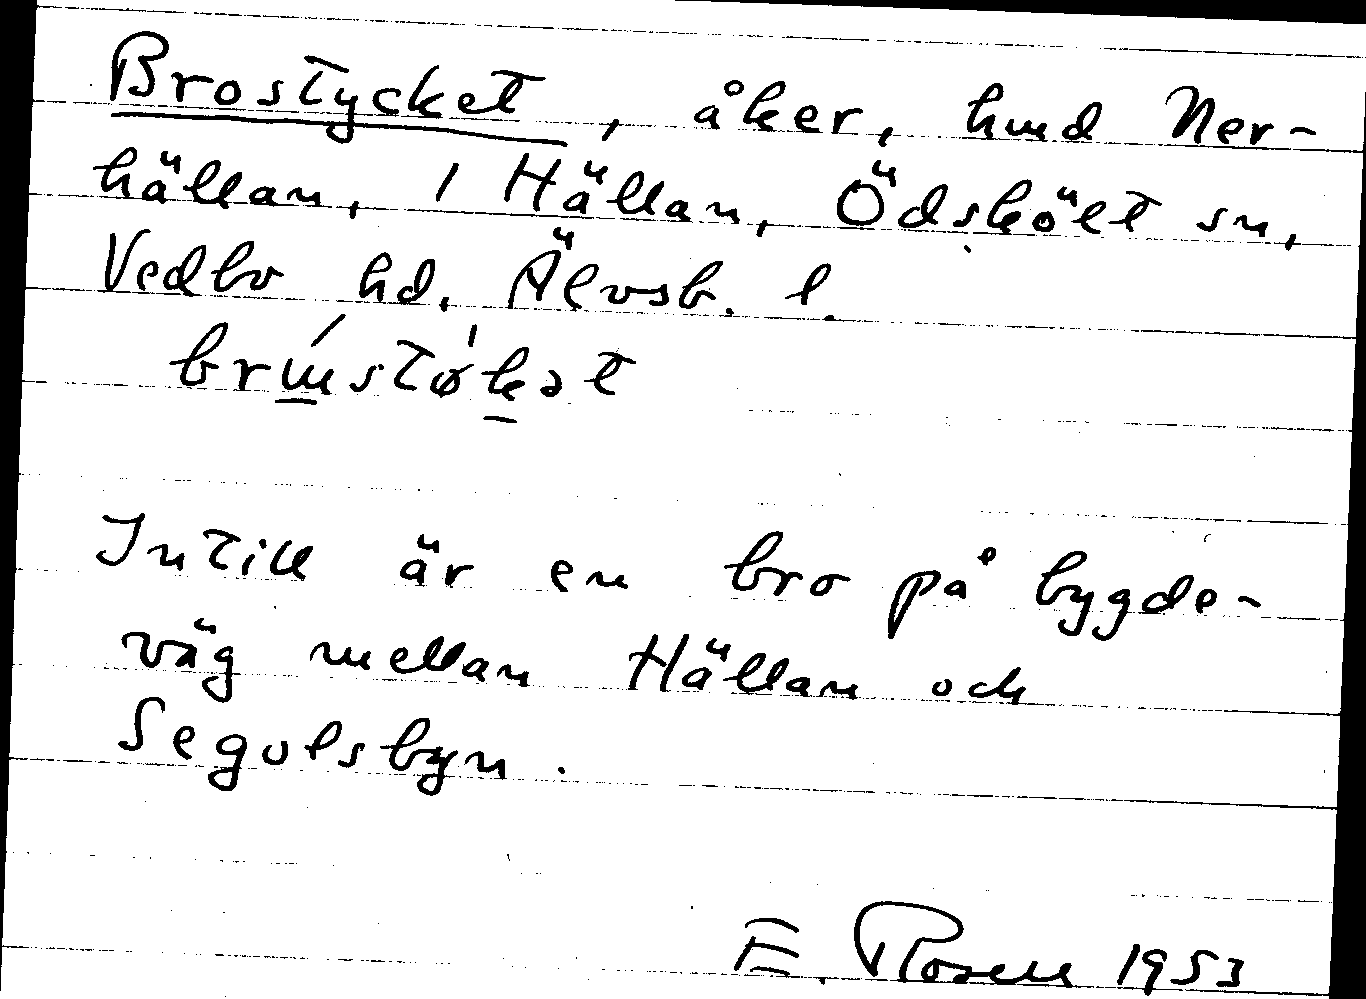 Brostycket, åker, hmd Ner-
hällan, 1 Hällan, Ödskölt sn,
Vedbo hd. Älvsb. l.
Intill är en bro på bygde-
väg mellan Hällan och
Segolsbyn.
E. Rosell 1953